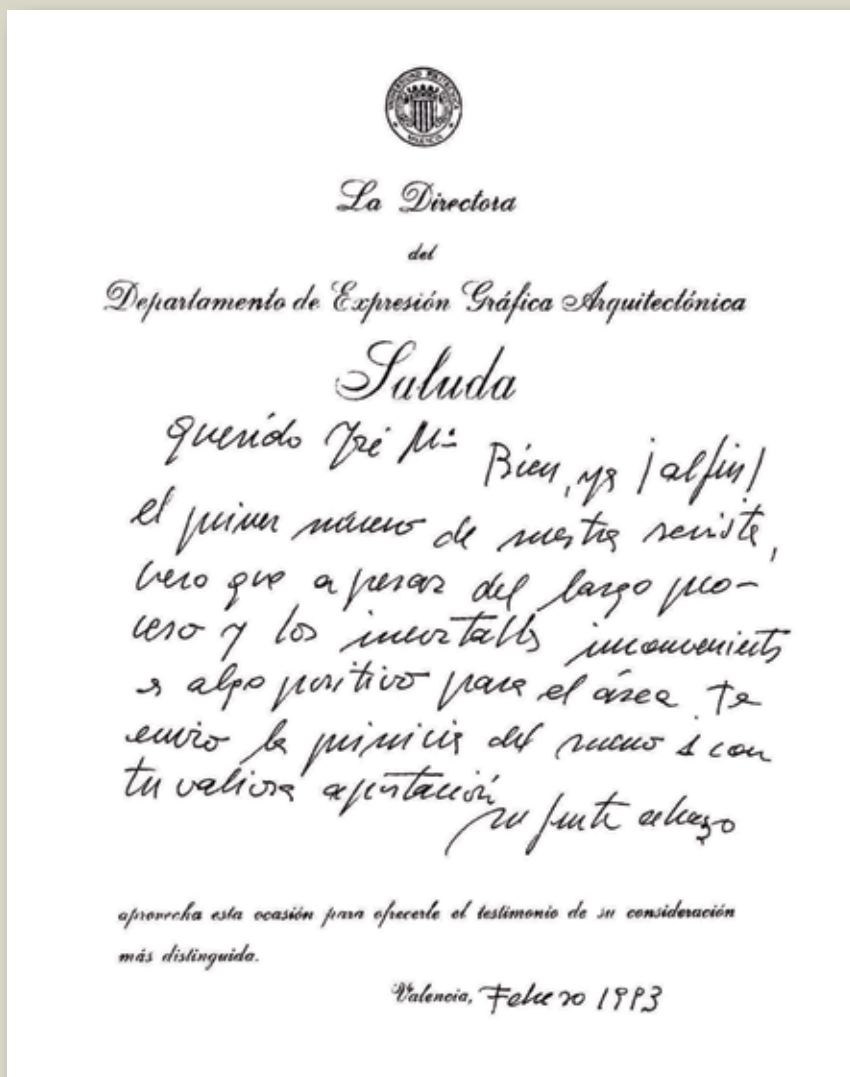 UNIVERSIDAD POLITECNICA
VALENCIA
La Directora
del
Departamento de Expresión Gráfica Arquitectónica
Saluda
Querido José Mª Bien, ya ¡al fin!
el primer número de nuestra revista,
creo que a pesar del largo pro-
ceso y los inevitables inconvenients
es algo positivo para el área. Te
envio la primicia del numero 1 con
tu valiosa aportación
un fuerte abrazo
aprovecha esta ocasión para ofrecerle el testimonio de su consideración
más distinguida.
Valencia, Febrero 1993